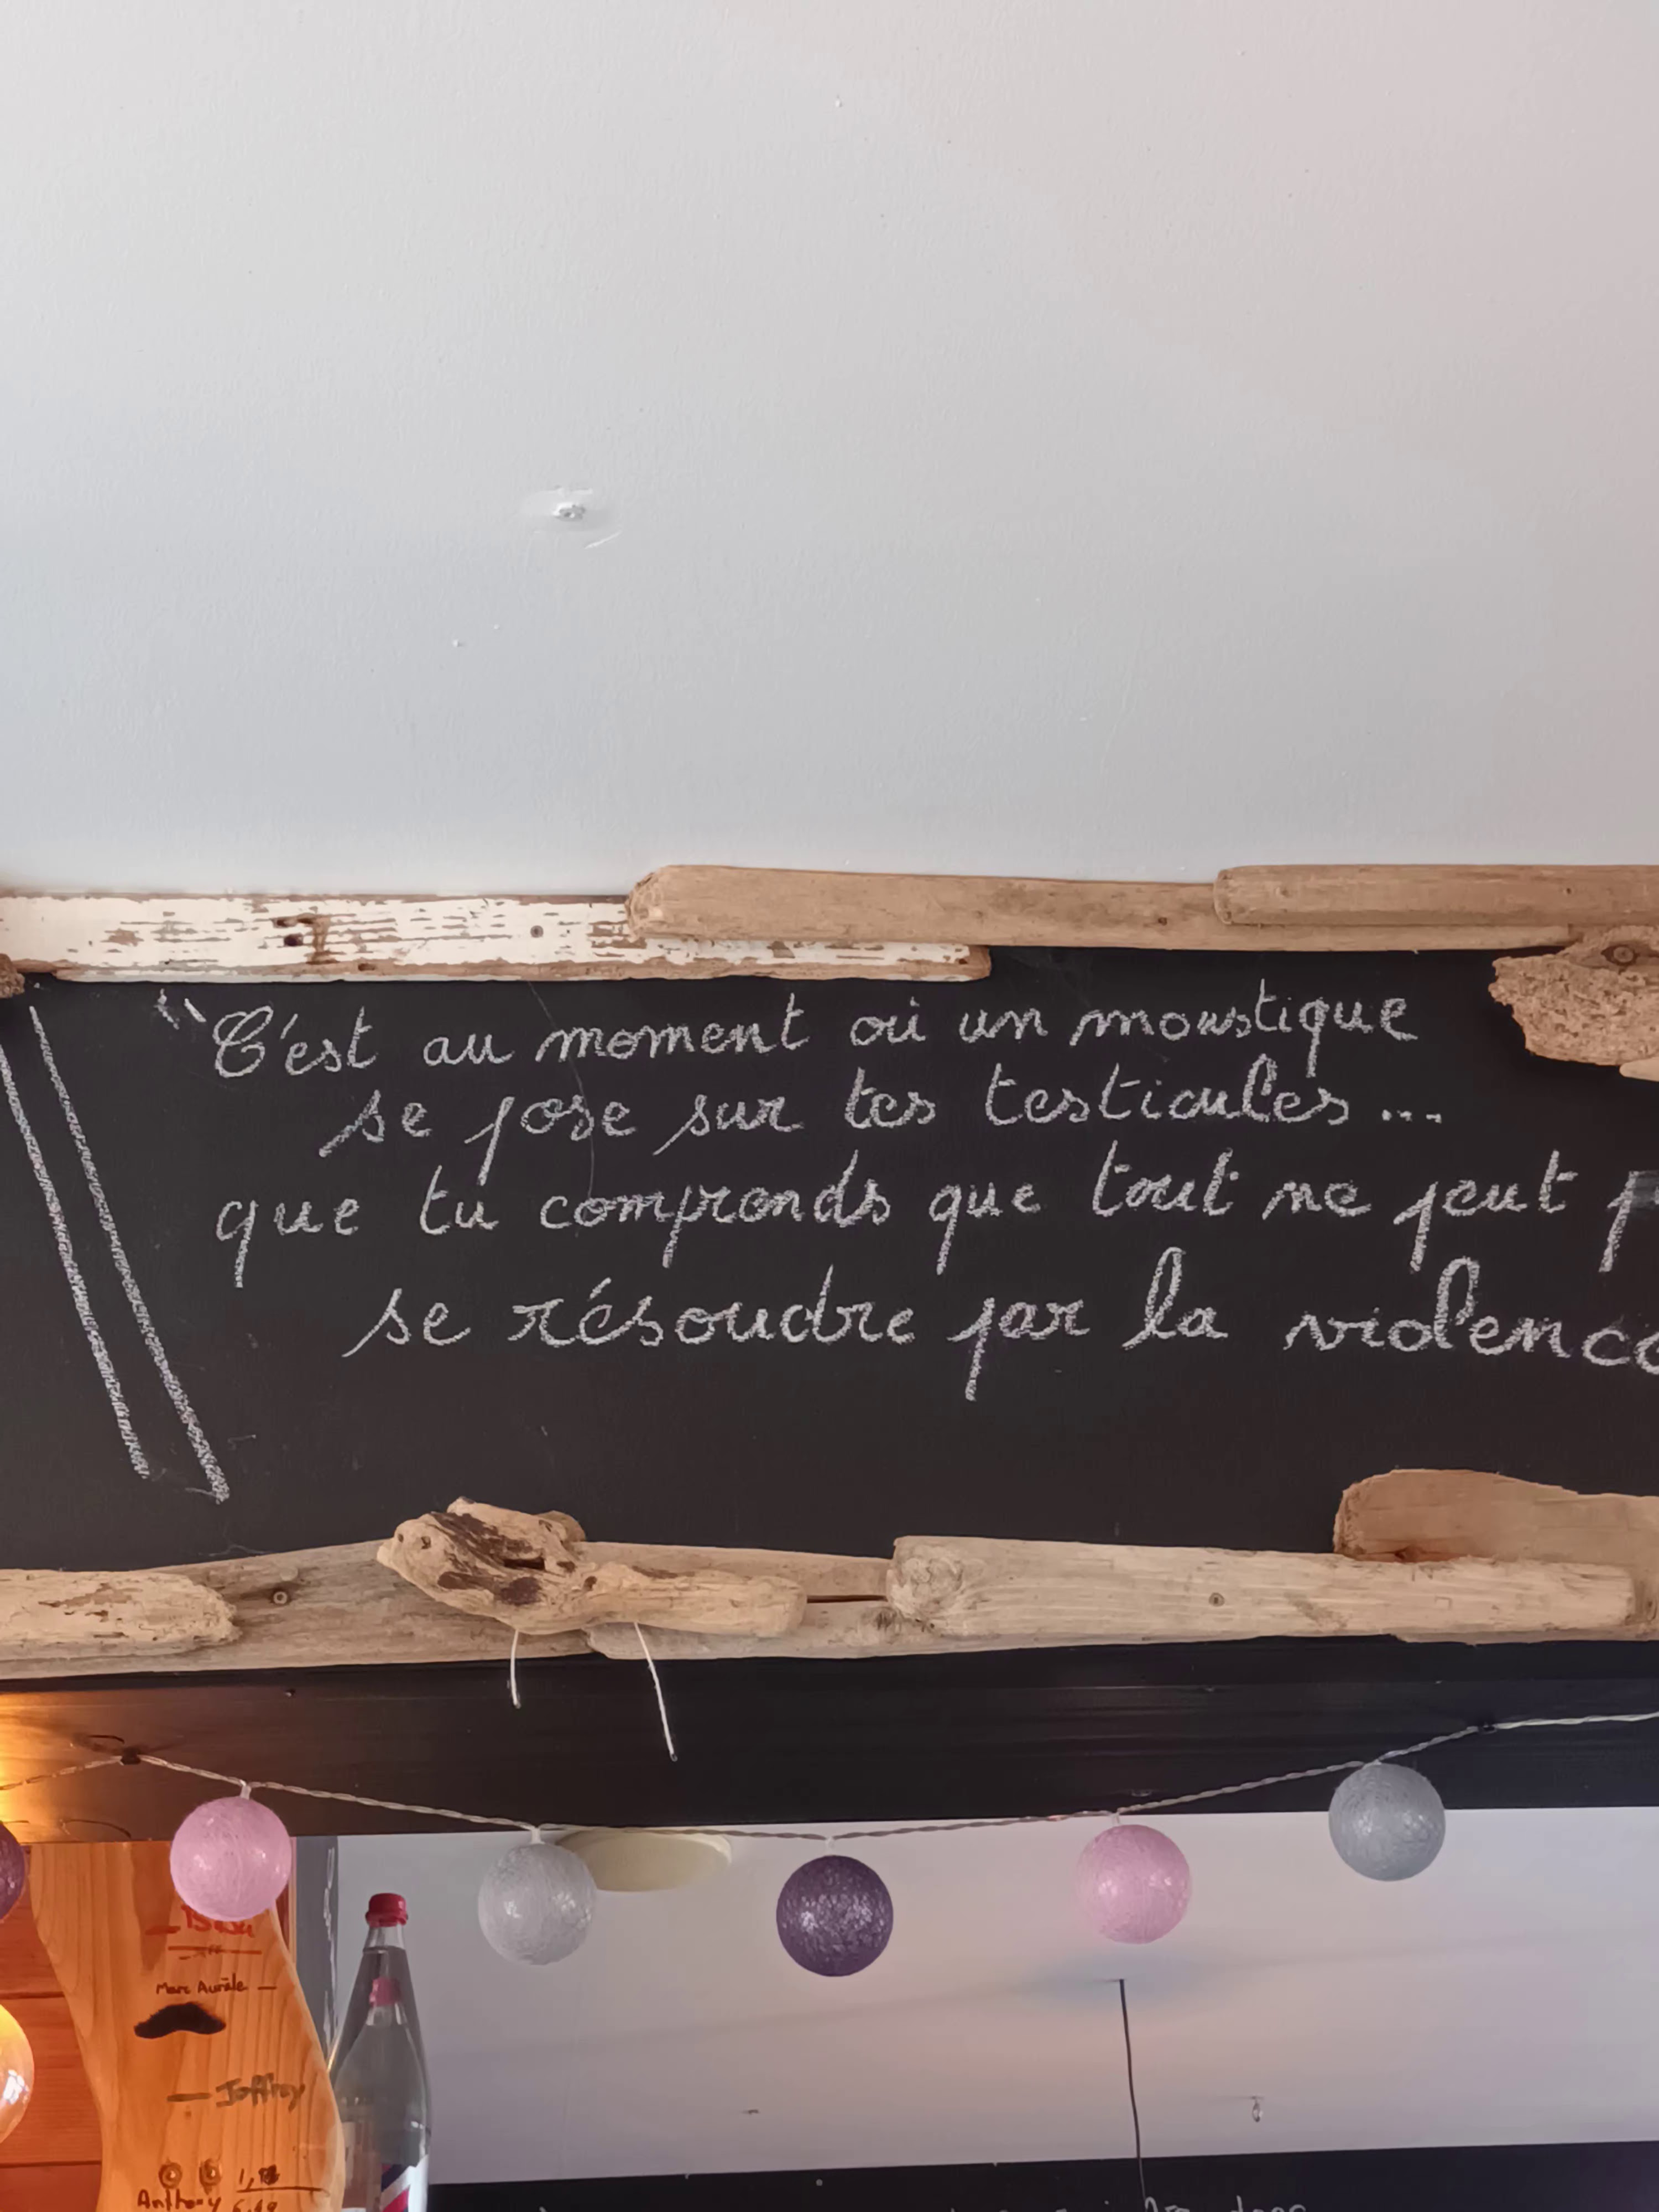 "C'est au moment où un moustique
se pose sur tes testicules...
que tu comprends que tout ne peut p
se résoudre par la violence
Marc Aurèle —
— Joffrey
Anthony